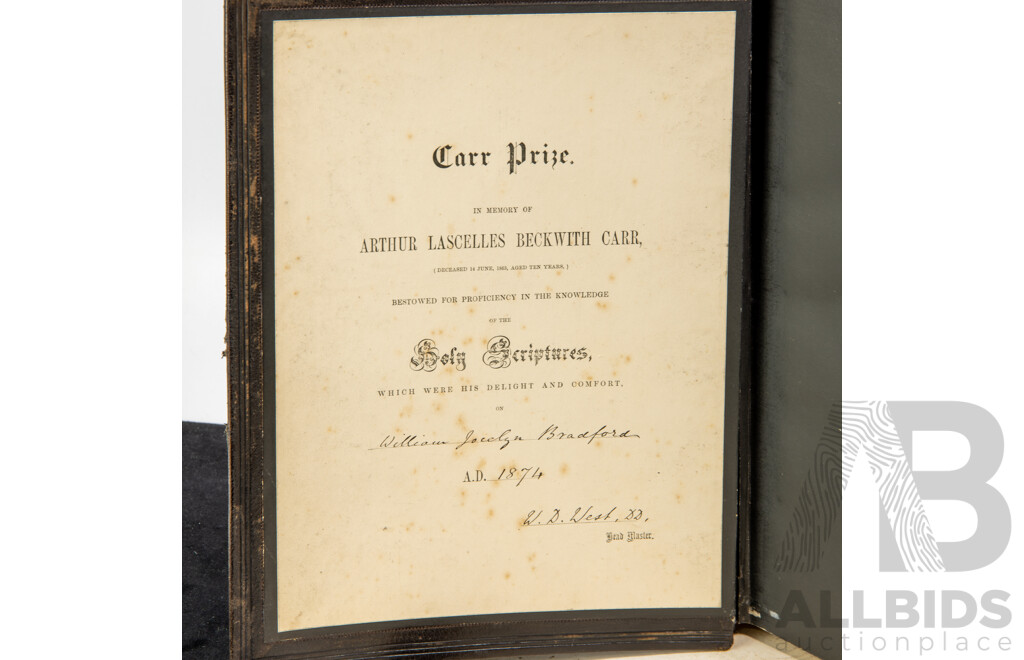 Carr Prize.
IN MEMORY OF
ARTHUR LASCELLES BECKWITH CARR,
( DECEASED 14 JUNE, , AGED TEN YEARS, )
BESTOWED FOR PROFICIENCY IN THE KNOWLEDGE
OF THE
Holy Scriptures,
WHICH WERE HIS DELIGHT AND COMFORT,
ON
William Jocelyn Bradford
A.D. 1874
W. D. West, DD,
Head Master.
AB
ALLBIDS
auctionplace